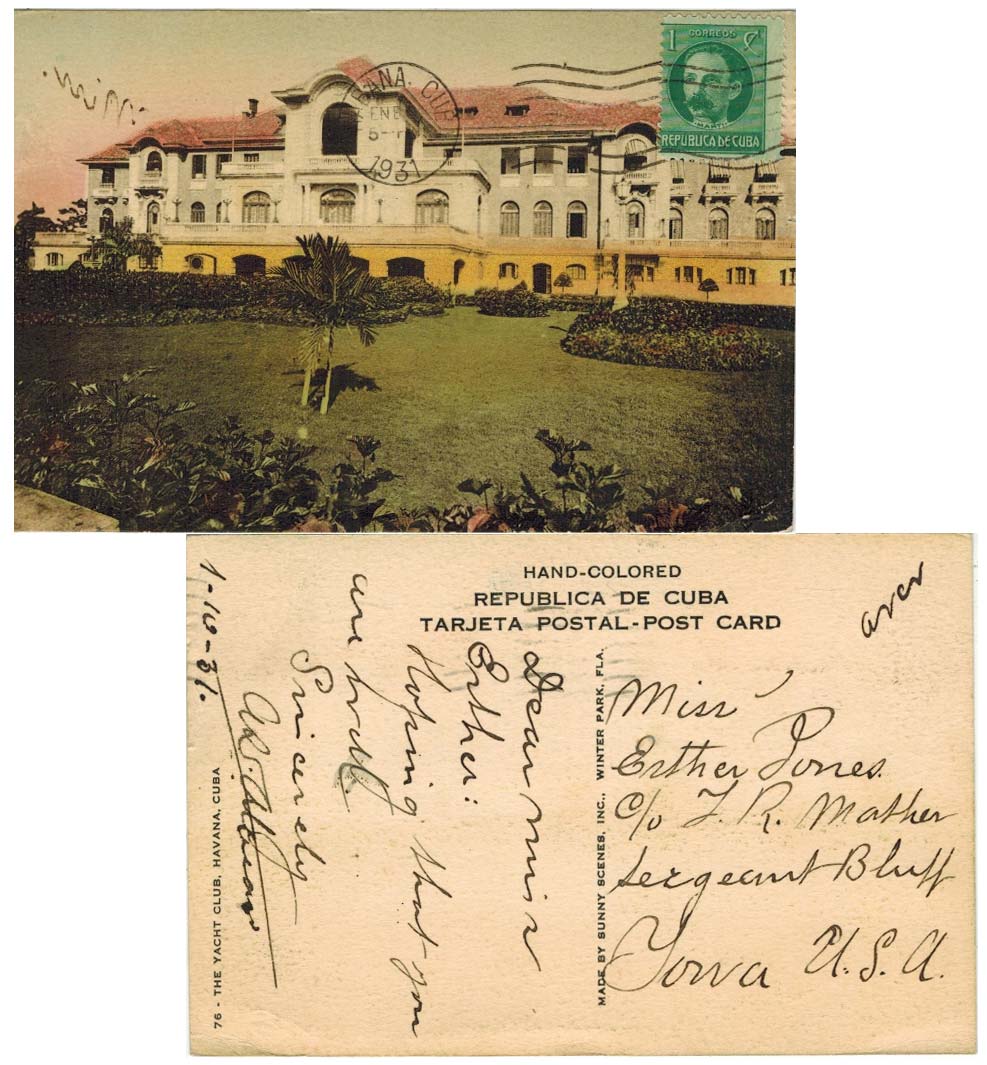 1 CORREOS ¢
MARTI
REPUBLICA DE CUBA
HABANA, CUBA
ENE
5-
1931
HAND-COLORED
REPUBLICA DE CUBA
TARJETA POSTAL-POST CARD
over
1-10-31.
Dear miss
Esther:
Hoping that you
are well.
Sincerely
76 - THE YACHT CLUB, HAVANA, CUBA
MADE BY SUNNY SCENES, INC., WINTER PARK, FLA.
Miss
Esther Jones.
c/o F. R. Mather
Sergeant Bluff
Iowa U.S.A.